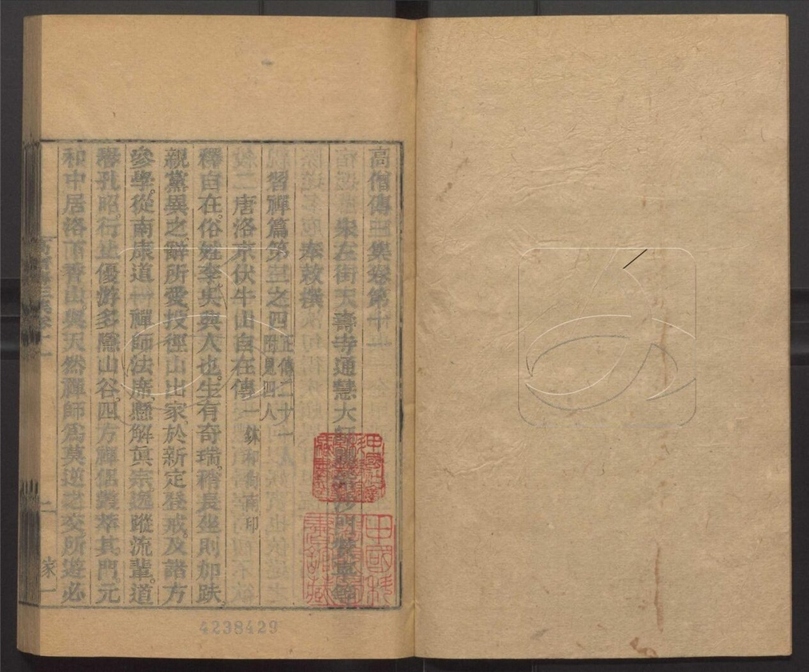 高僧傳三集卷第十一
宋左街天壽寺通慧大師賜紫沙門贊寧等
奉敕撰
習禪篇第三之四 正傳二十一 附見四人
唐洛京伏牛山自在傳 一鉢 南印
釋自在俗姓李吳興人也。生有奇瑞。稍長坐則加趺
親黨異之辭所愛投徑山出家於新定登戒。及諸方
參學。從南康道一禪師法席懸解真宗逸蹤流輩。道
譽孔昭。行止優游多隱山谷。四方禪侶叢萃其門。元
和中居洛下香山與天然禪師為莫逆之交所遊必
家一
4238429